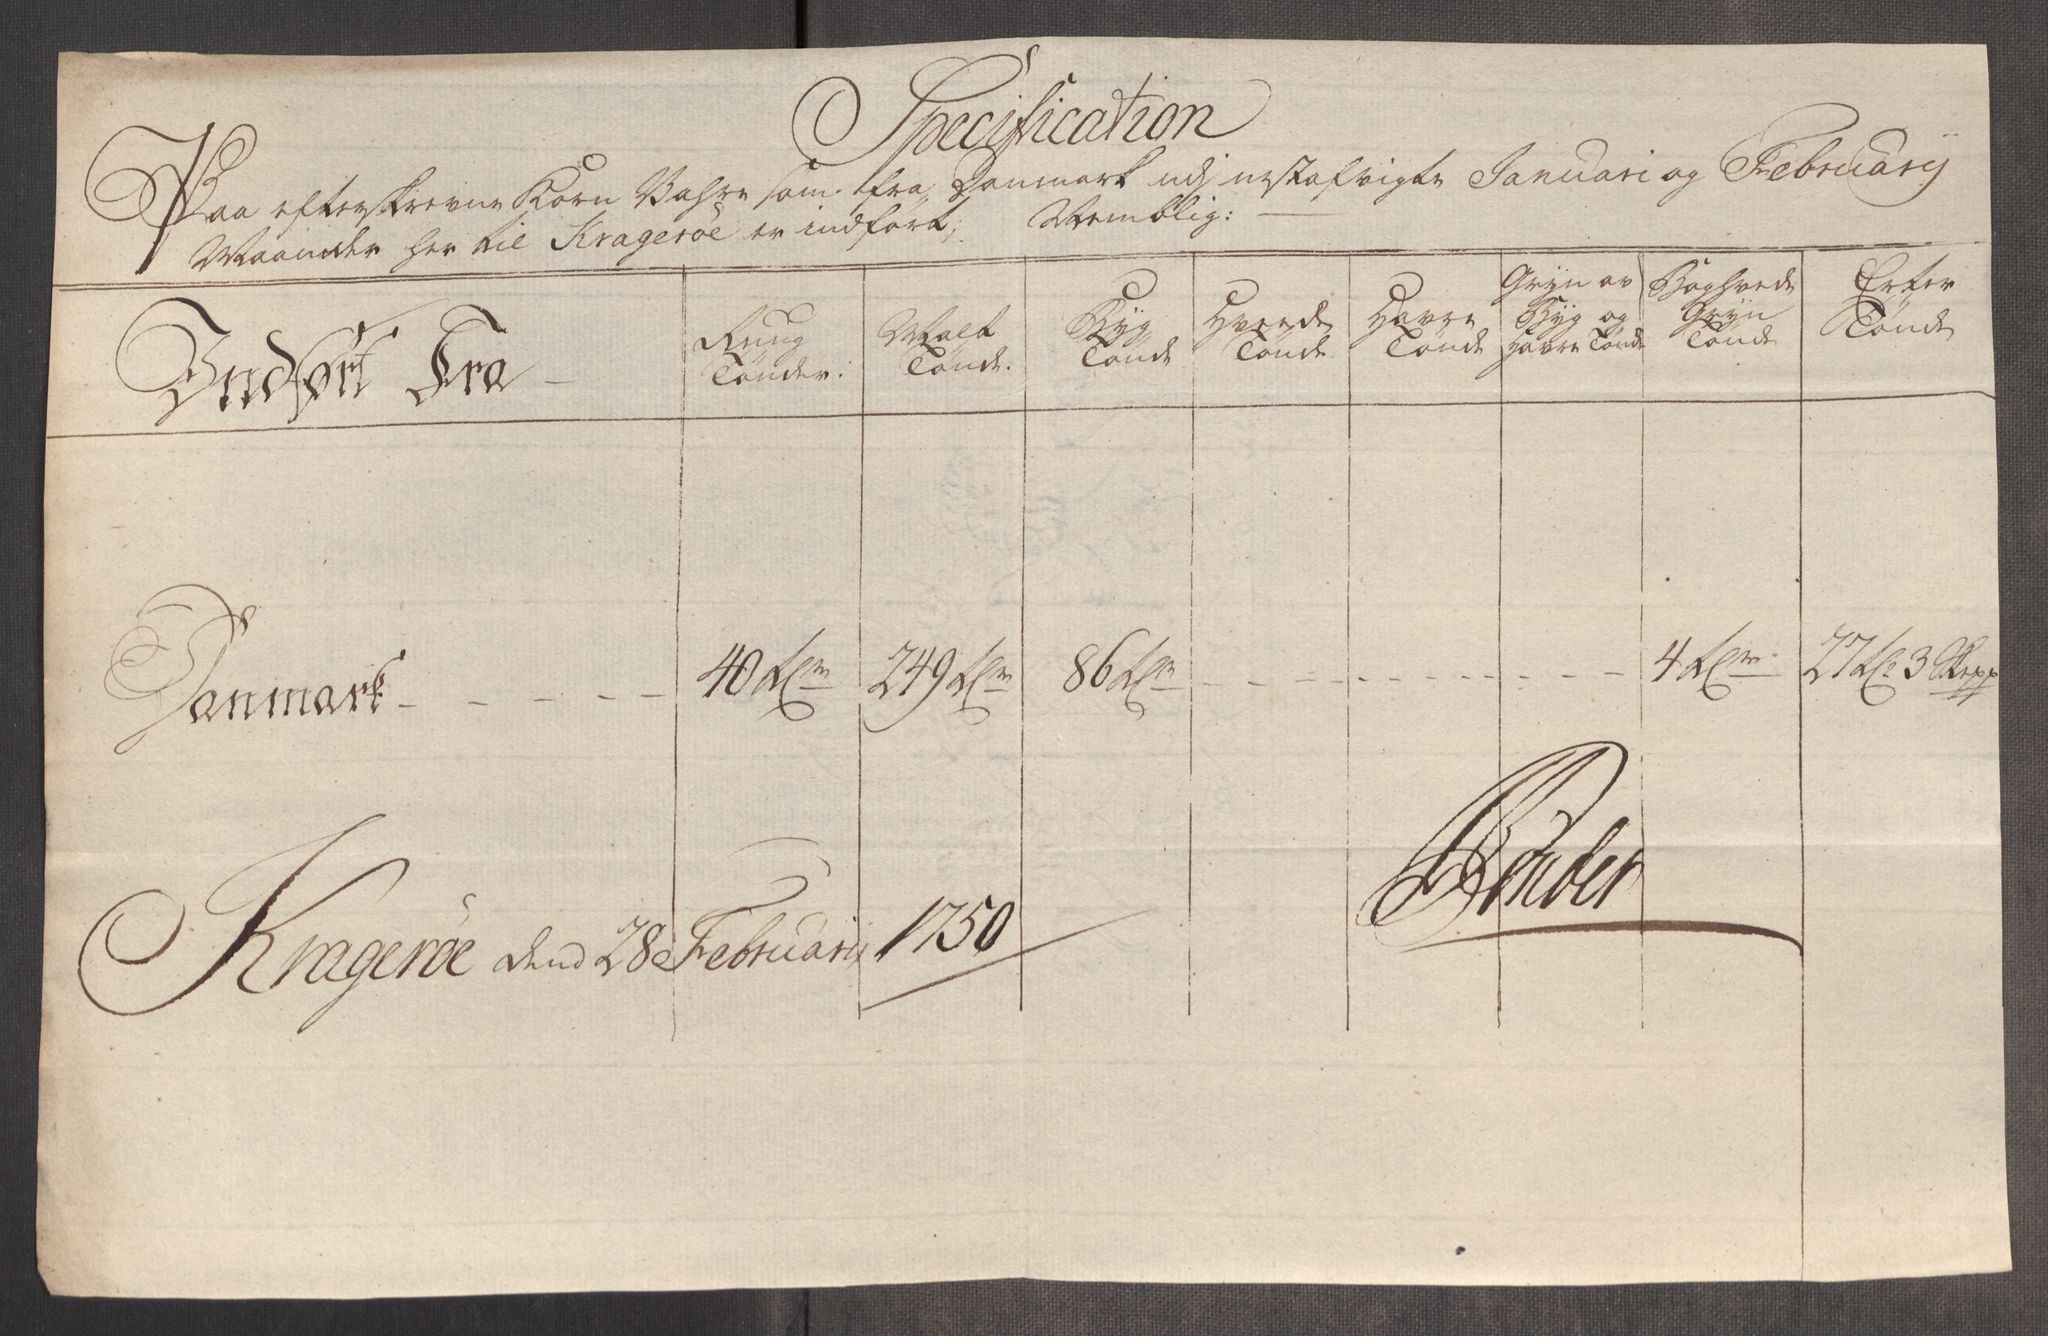 Specification
Paa efterskrevne Korn Vahre som fra Danmark udj nestafvigte Januari og Februarij
Maaneder her til Kragerøe er indført, Nemblig:
Indført Fra
Rug Tønder.
Malt Tønde.
Byg Tønde
Hvede Tønde
Havre Tønde
Gryn av Byg og Havre Tønde
Boghvede Gryn Tønde
Erter Tønde
Danmark 40 Tr 249 Tr 86 Tr 4 Tr 27 Tr 3 Skepp
Kragerøe dend 28 Februarij 1750